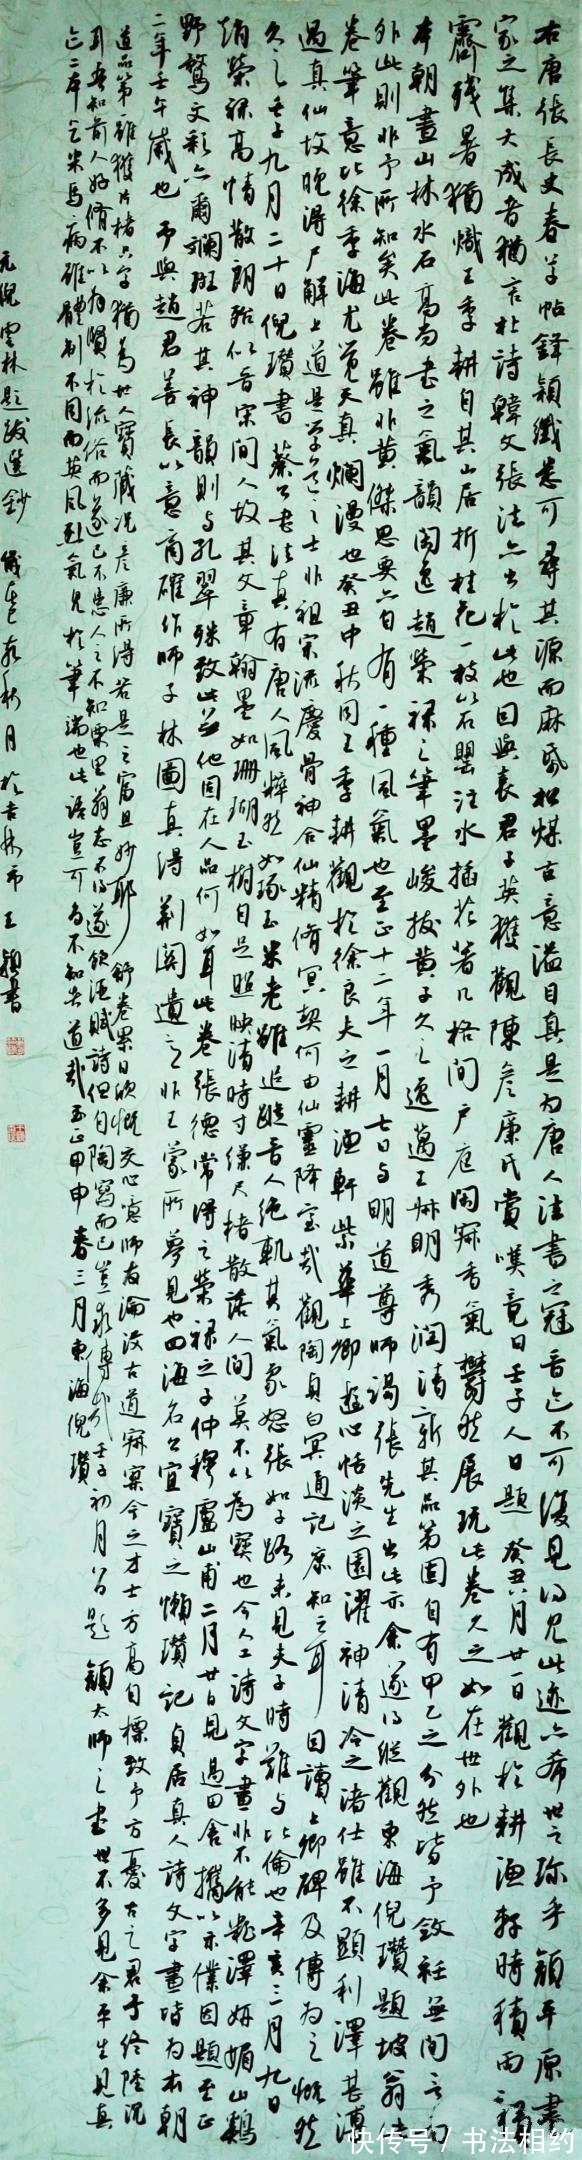 右唐张長史春草帖鋒穎纖悉可尋其源而麻帋松煤古意溢目真是为唐人法書之冠晋迹不可復見得見此迹亦希世之珎乎顔平原書
家之集大成者猶言杜詩韓文張法亦出於此也因與袁君子英獲觀陳彦廉氏賞嘆竟日壬子人日題 癸丑八月廿一日觀於耕漁軒時積雨初
霽殘暑猶熾王季耕自其山居折桂花一枝以石罌注水插花著几格間户庭閑寂香氣鬱然展玩此卷久之如在世外也
本朝畫山林水石高尚書之氣韻閑逸趙榮禄之筆墨峻拔黄子久之逸邁王叔明秀潤清新其品第固自有甲乙之分然皆予斂衽無間言者
外此則非予所知矣此卷雖非黄傑思要亦自有一種風氣也至正十二年一月七日与明道尊師谒張先生出此示余遂得縱觀東海倪瓚題坡翁
卷筆意比徐季海尤覺天真爛漫也癸丑中秋同王季耕觀於徐良夫之耕漁軒 紫華上卿遊心恬淡之園濯神清泠之渚仕雖不顯利澤甚溥
遇真仙坟晚得尸解上道是学之士非祖宗流慶骨神合仙精脩冥契何由仙靈降室哉觀陶貞白冥通記庶知之耳 因讀上卿碑及傳为之慨然
久之壬子九月二十日倪瓚書 蔡公書法真有唐人風粹然如琢玉米老雖追踪晋人绝軌其氣象怒張如子路未見夫子時難与比倫也辛亥三月九日
趙榮禄高情散朗殆似晋宋間人故其文章翰墨如珊瑚玉樹自足照映清時寸縑尺楮散落人間莫不以为寶也今人工詩文字畫非不能粧澤妍媚山鷄
野鶩文彩亦爾斓斑若其神韻則与孔翠殊致此無他固在人品何如耳此卷張德常得之榮禄之子仲穆 廬山甫二月廿日見過田舍攜以示僕因題至正
二年壬午歲也 予與趙君善長以意商確作師子林圖真得荆關遺意非王蒙所夢見也四海名公宜寶之懶瓚記 貞居真人詩文字畫皆为本朝
道品第一雖獲片楮只字猶为世人寶藏况彦廉所得若是之富且妙耶 舒卷累日欣慨交心意師友淪没古道寂寞今之才士方高自標致予方憂古之君子終陸沉
耳吾知前人好脩不以为賢於流俗而遂已不患人之不知栗里翁志不得遂飲酒賦詩但自陶寫而已豈求傳哉壬子初月八日題 顔太師之書世不多見余平生見真
迹二本 所馬病雖體制不同而英風烈氣見於筆端也此語豈可为不知者道哉至正甲申春三月東海倪瓚
元倪雲林題跋選鈔 秋月於吉林市王穎書
快传号 / 书法相约